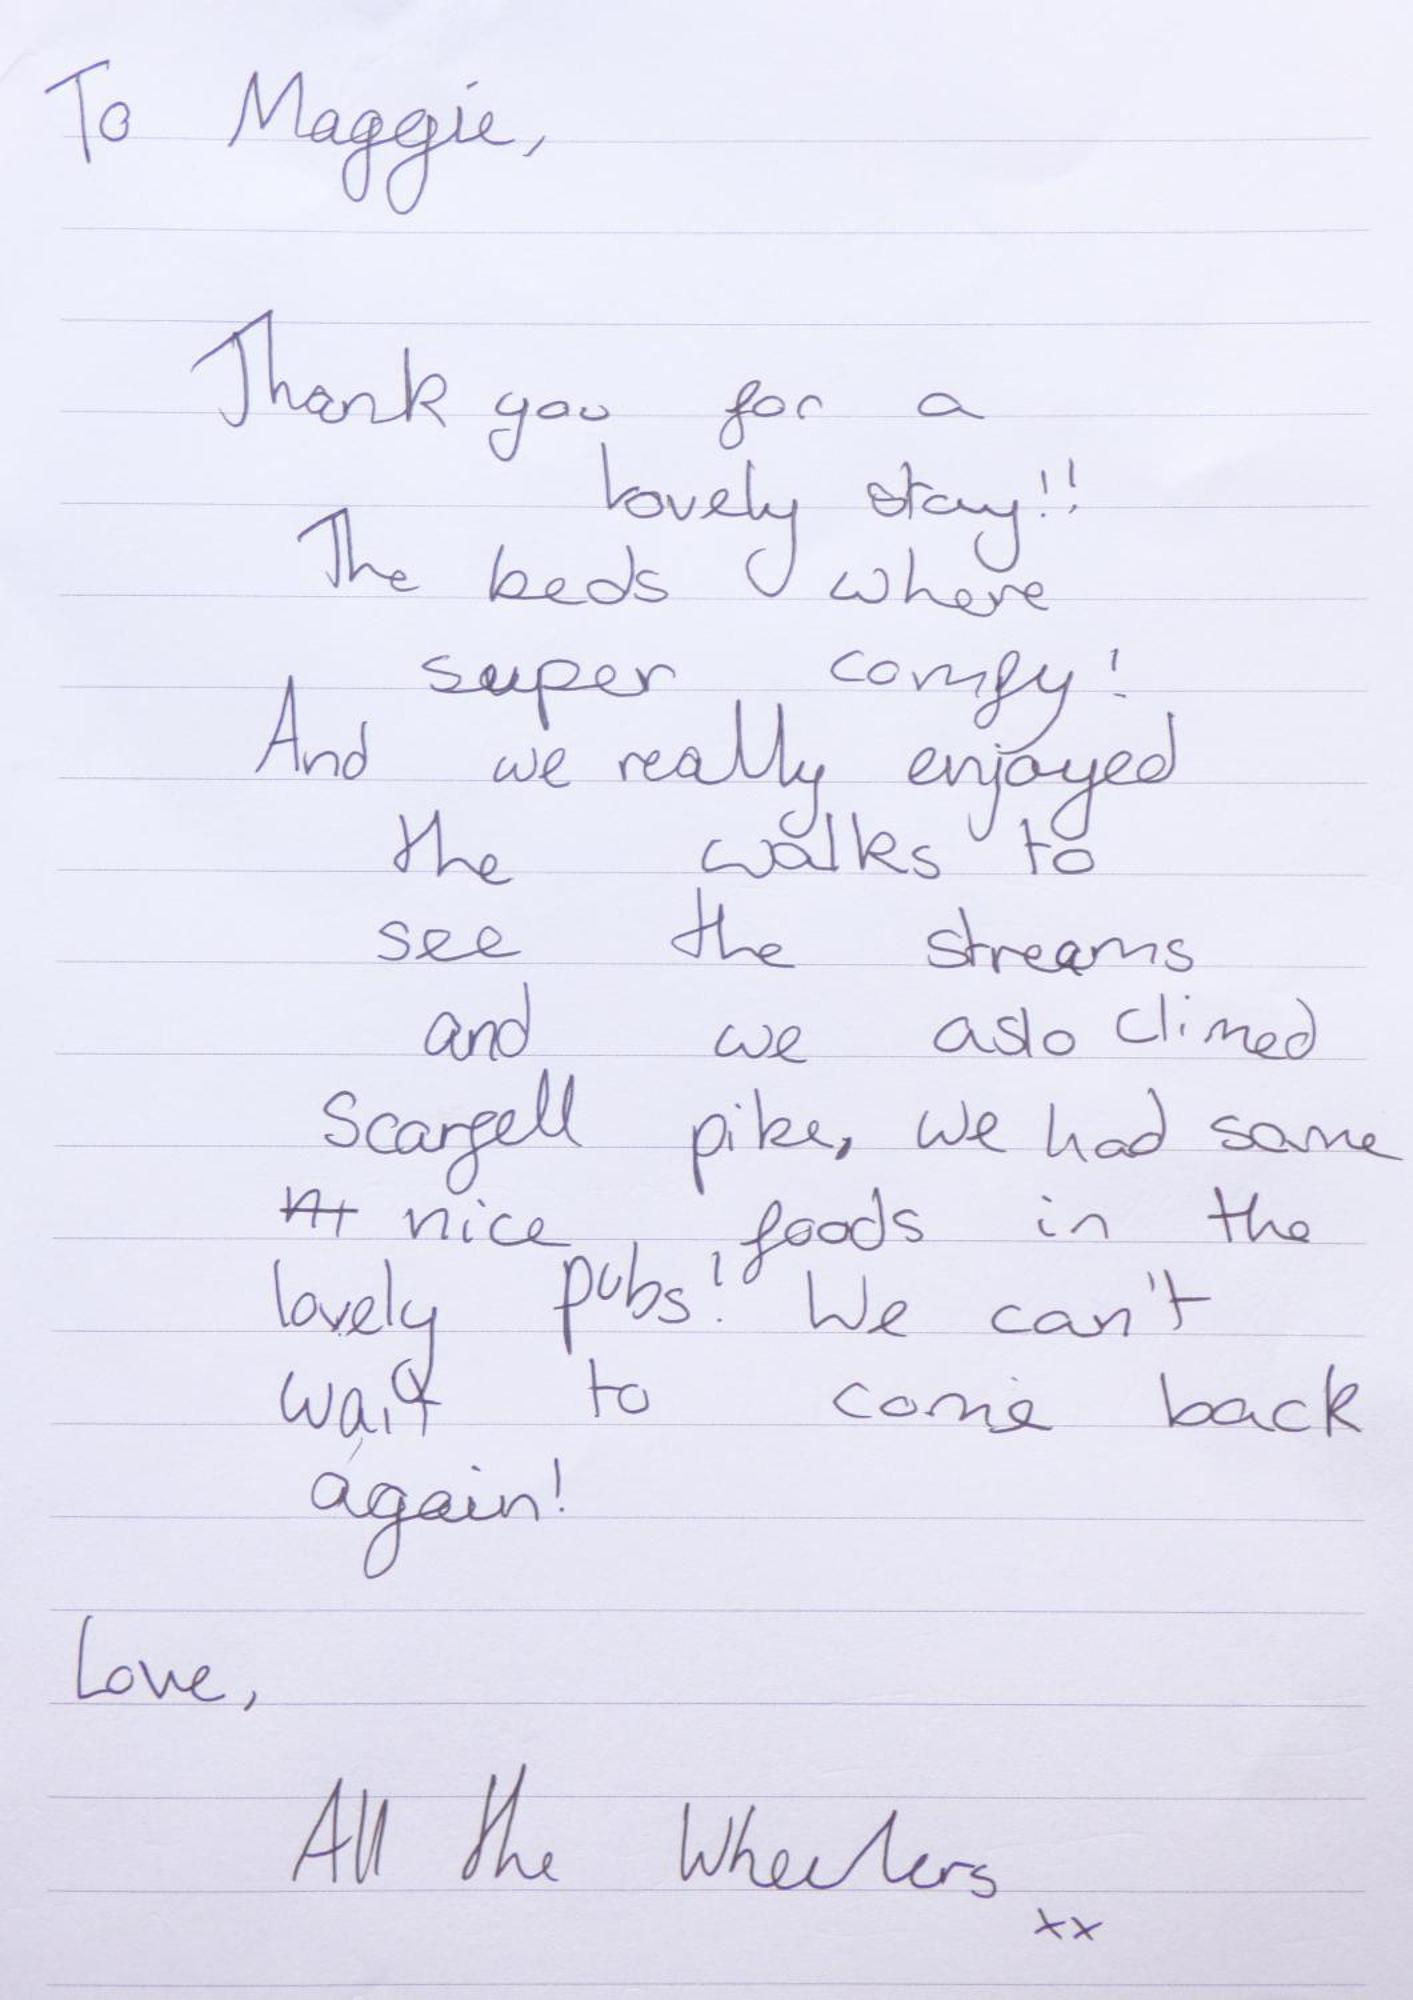 To Maggie,
Thank you for a
lovely stay!!
The beds where
super comfy!
And we really enjoyed
the walks to
see the streams
and we aslo climed
Scargell pike, we had some
nice foods in the
lovely pubs! We can't
wait to come back
again!
Love,
All the Wheelers
xx